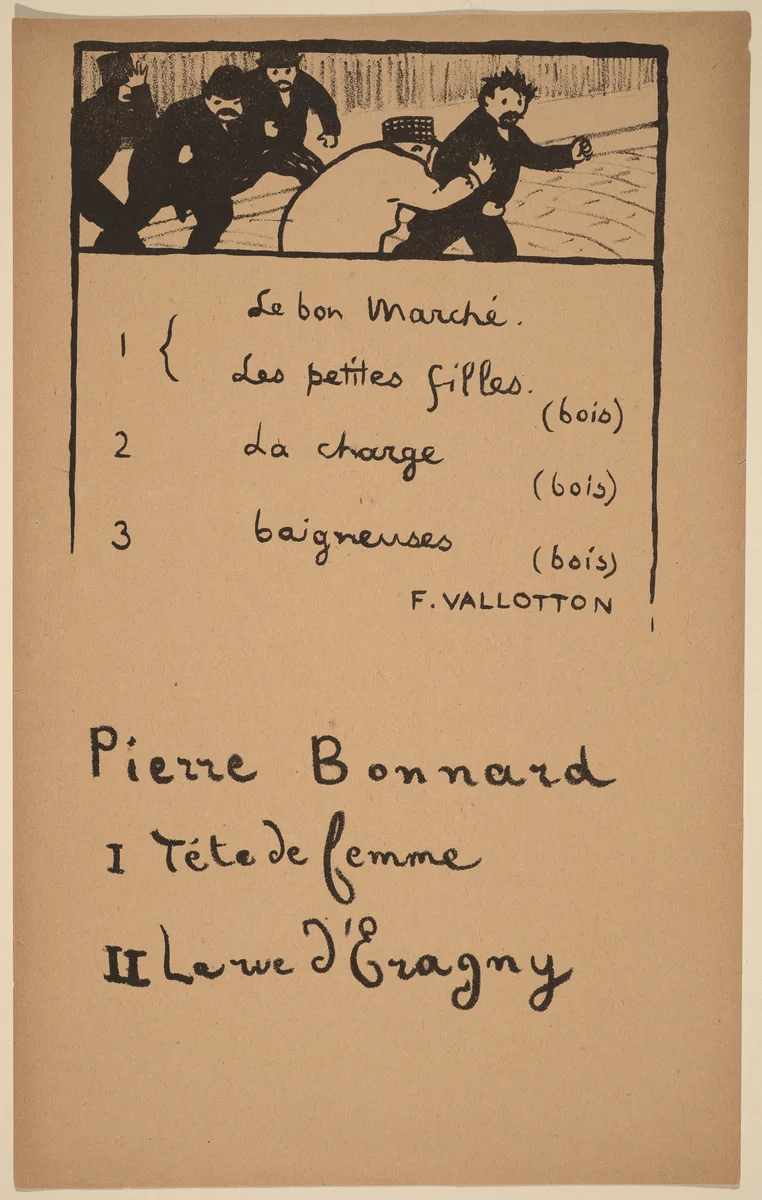 1 { Le bon Marché.
Les petites filles.
(bois)
2 La charge
(bois)
3 baigneuses
(bois)
F. VALLOTTON
Pierre Bonnard
I Téte de femme
II La rue d'Eragny